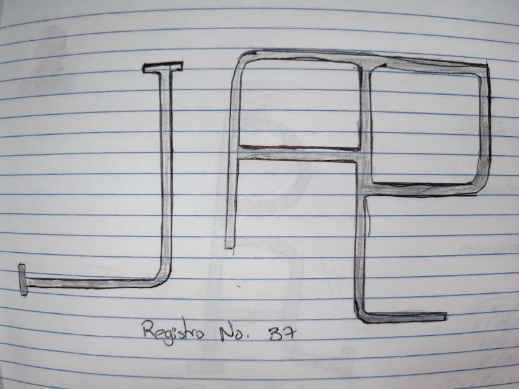 JAP
Registro No. 37